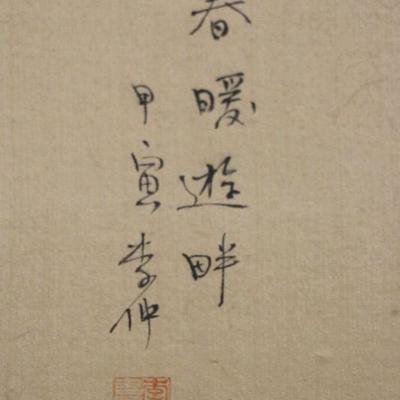 春暖遊畔
甲寅李仲